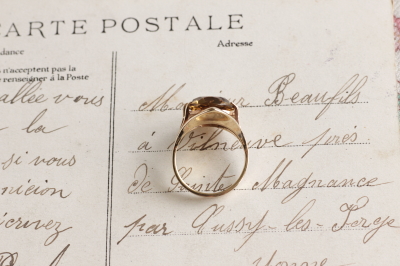 CARTE POSTALE
ndance
Adresse
n'acceptent pas la
renseigner à la Poste
allée vous
la
si vous
écrivez
Monsieur Beaufils
à Vilneuve près
de Sainte Magnance
par Cussy-les-Forge
Yonne